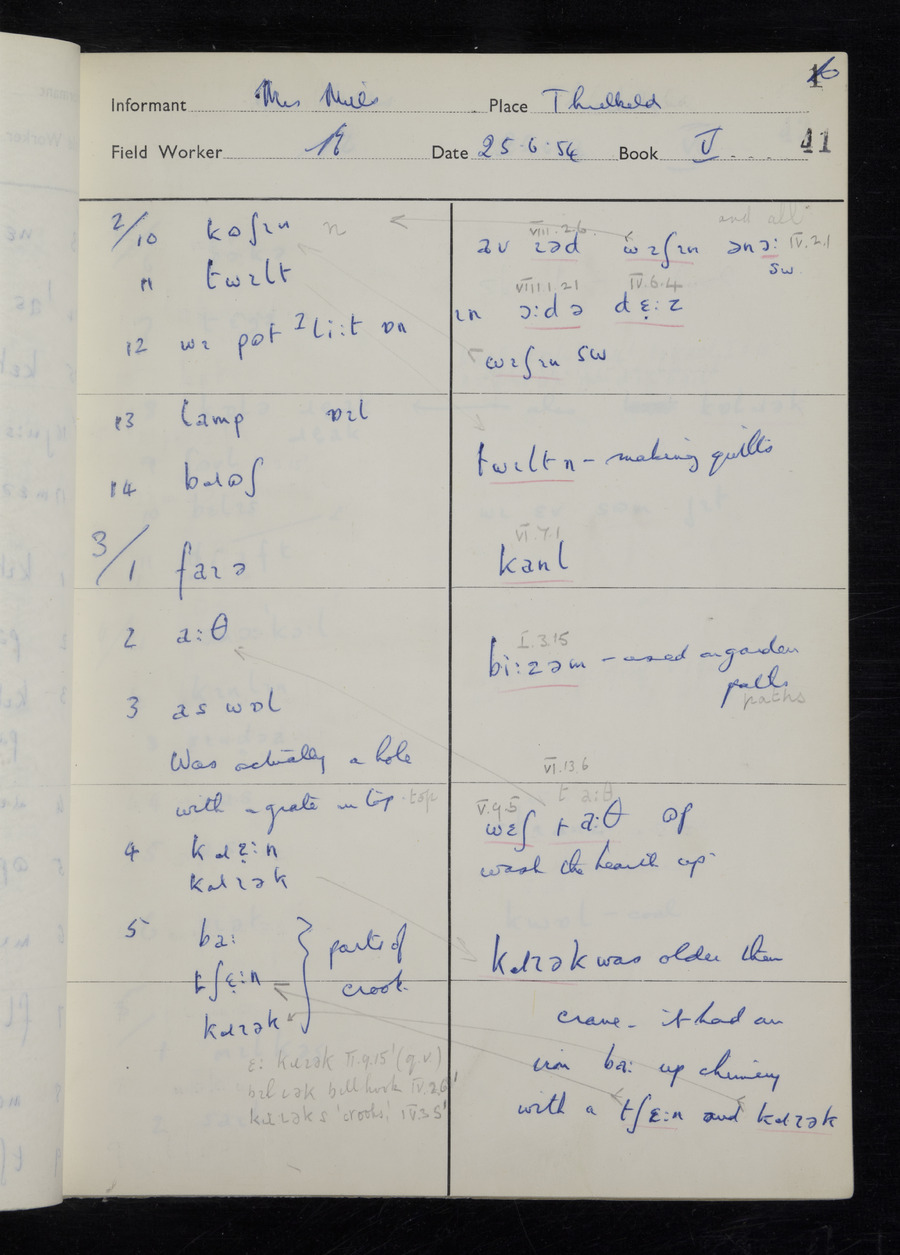 Informant Mrs Place Threlkeld
Field Worker Date 25·6·54 Book V 41
2/10 kʊʃɪn n
11 twɪlt
12 wɪ pʊt ʔli:t ɒn
13 lamp ɒɪl
14 bɹʊʃ
3/1 faɪə
2 a:θ
3 as wɒl
Was actually a hole
with a grate on top top
4 kɹɛ̣:n
kɹɪək
5 ba:
tʃɛ̣:n
kɹɪək
} parts of
crook
ɛ: kɹɪək II.9.15 (q.v.)
bɪlɪək billhook IV.2.6
kɹɪəks 'crooks' IV.3.5
and all
VIII.2.6. IV.2.1
av ɪəd wɪʃɪn ənɔ:
sw.
VIII.1.21 IV.6.4
ɪn ɔ:də dɛ̣:z
wɪʃɪn sw
twɪltn – making quilts
VI.7.1
kanl
I.3.15
bi:zəm – used on garden
paths
paths
VI.13.6
V.9.5 t a:θ
wɛʃ t a:θ ʊp
wash the hearth up
kɹɪək was older than
crane – it had an
iron ba: up chimney
with a tʃɛ:n and kɹɪək